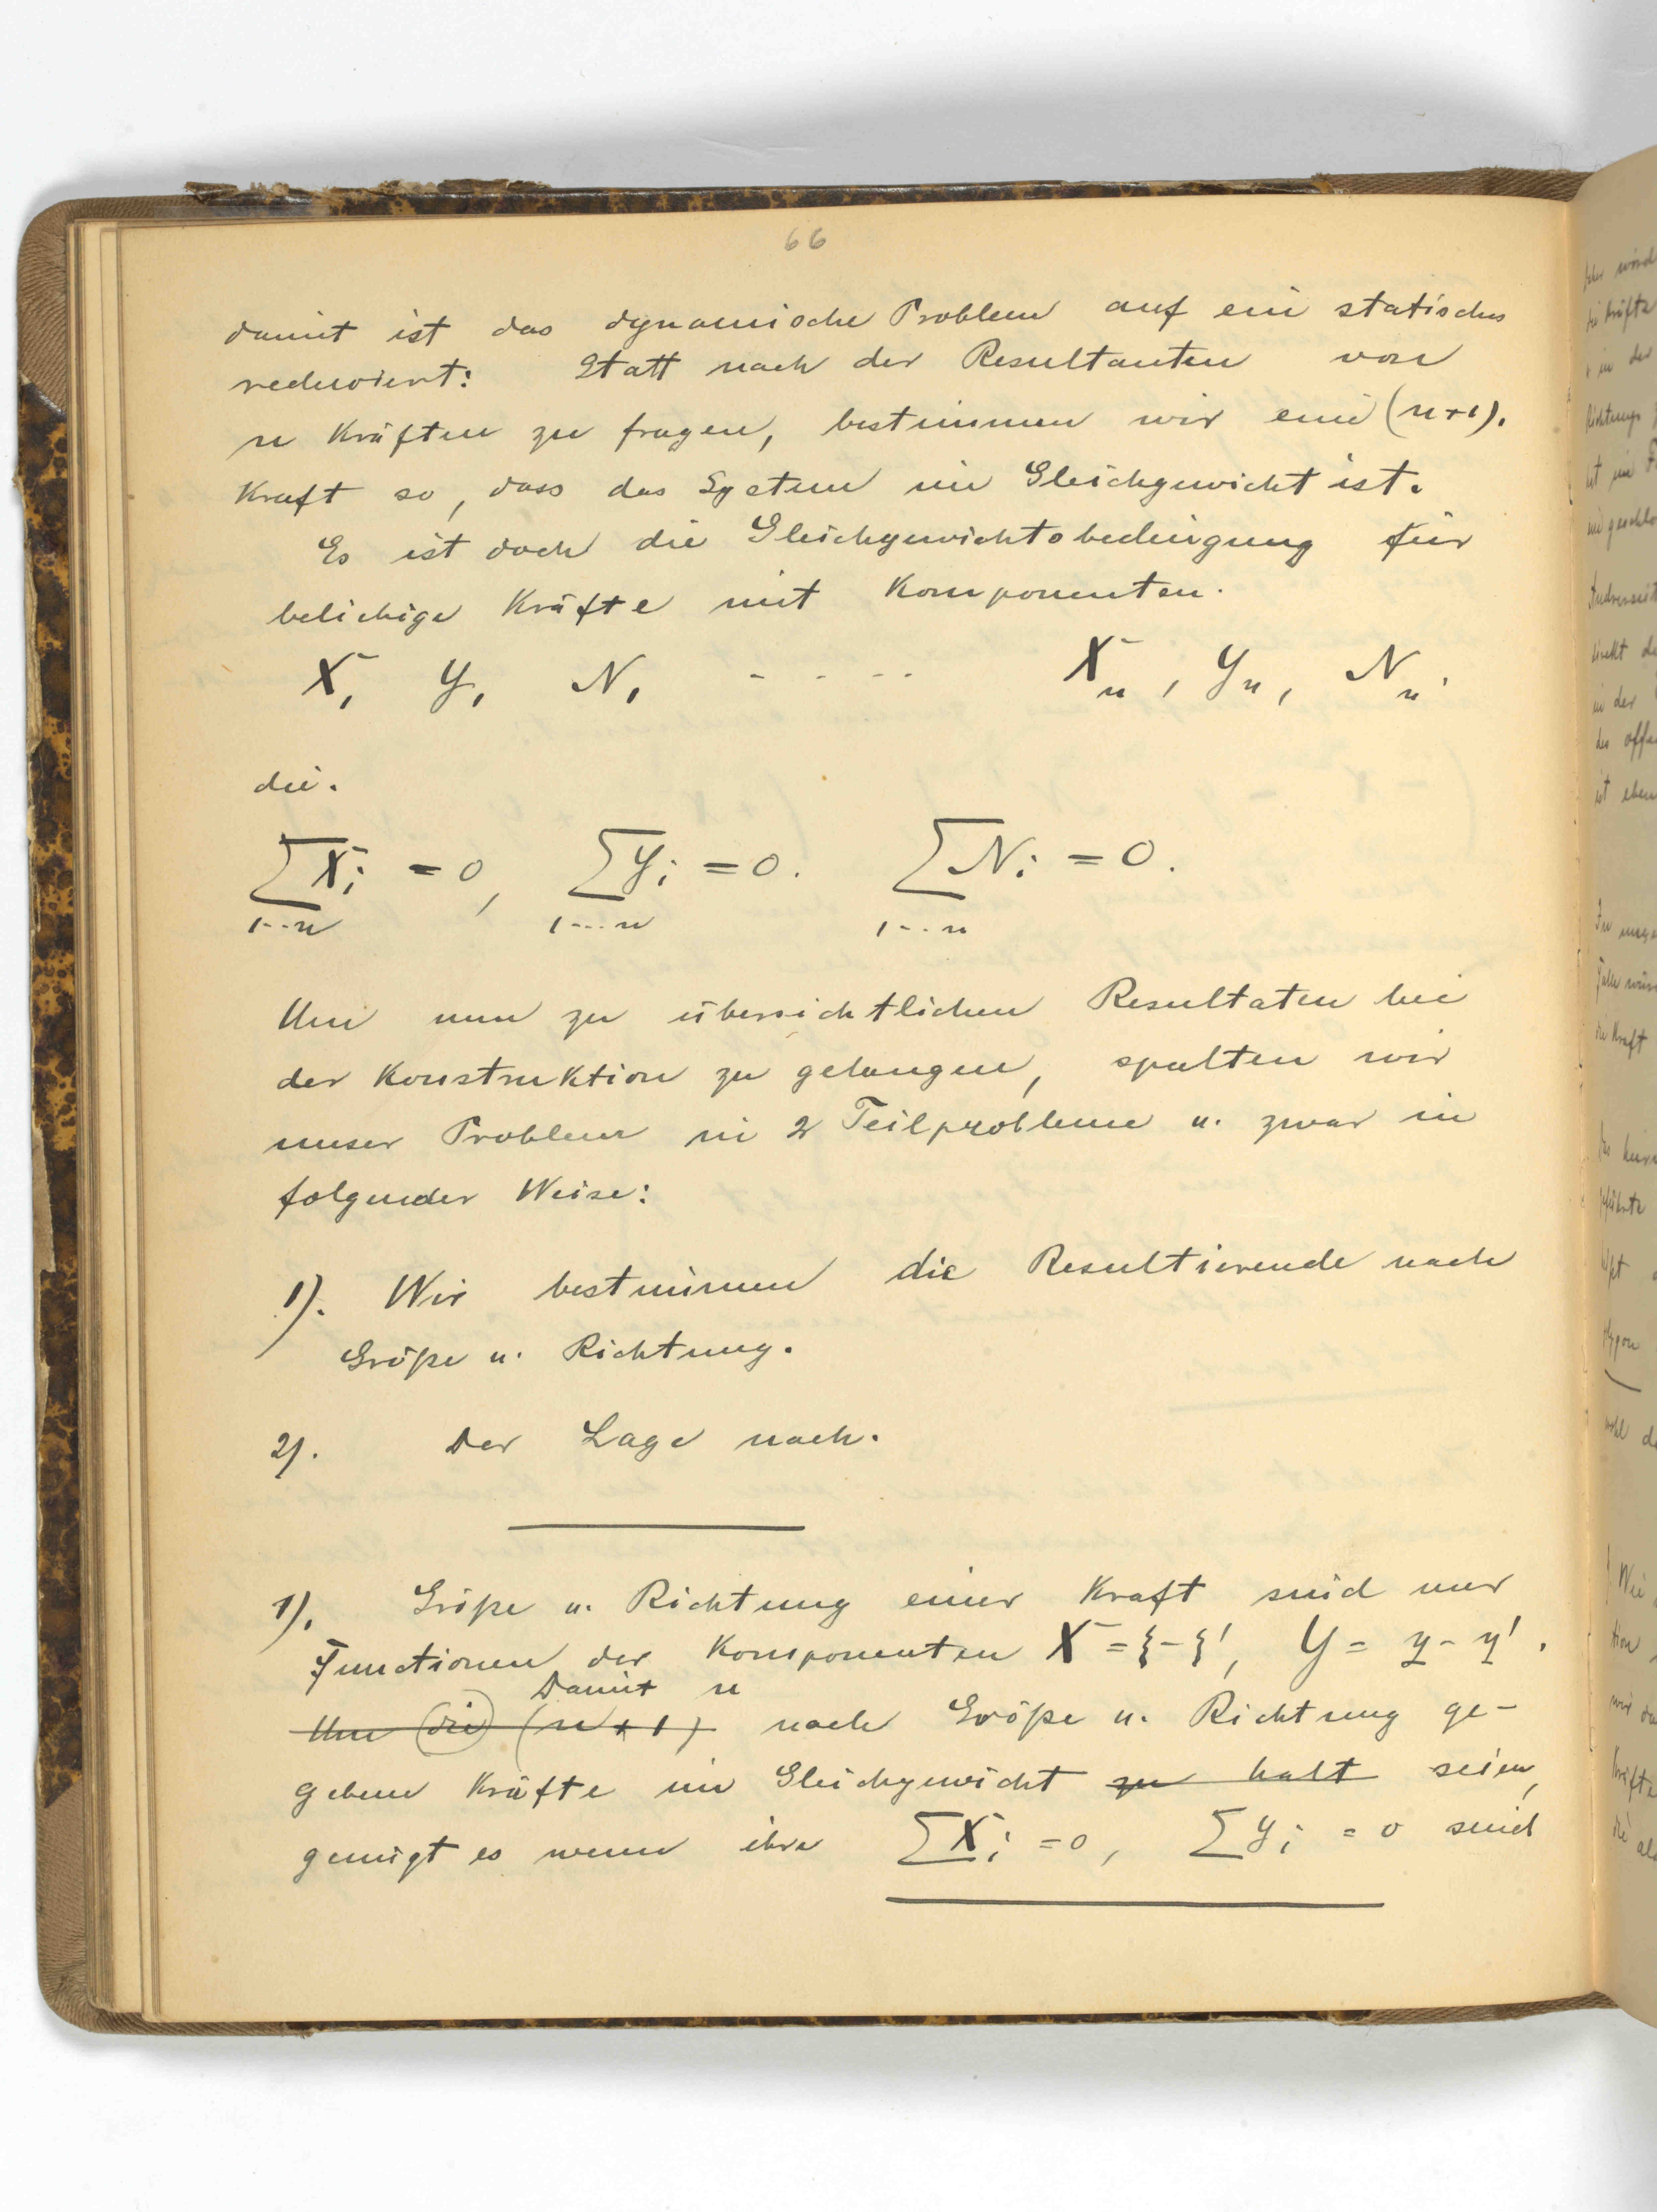 66
damit ist das dynamische Problem auf ein statisches
reduziert: Statt nach der Resultanten von
n Kräften zu fragen, bestimmen wir eine (n+1).
Kraft so, dass das System im Gleichgewicht ist.
Es ist doch die Gleichgewichtsbedingung für
beliebige Kräfte mit Komponenten.
X₁ Y₁ N₁ - - - - Xₙ, Yₙ, Nₙ.
die.
∑Xᵢ = 0, ∑Yᵢ = 0. ∑Nᵢ = 0.
1--n 1---n 1--n
Um nun zu übersichtlichen Resultaten bei
der Konstruktion zu gelangen, spalten wir
unser Problem in 2 Teilprobleme u. zwar in
folgender Weise:
1). Wir bestimmen die Resultierende nach
Größe u. Richtung.
2). Der Lage nach.
1). Größe u. Richtung einer Kraft sind nur
Functionen der Komponenten X = ξ - ξ', Y = η - η'.
Damit n
Um (die) (n+1) nach Größe u. Richtung ge-
gebene Kräfte im Gleichgewicht zu halt seien,
genügt es wenn ihre ∑Xᵢ = 0, ∑Yᵢ = 0 sind